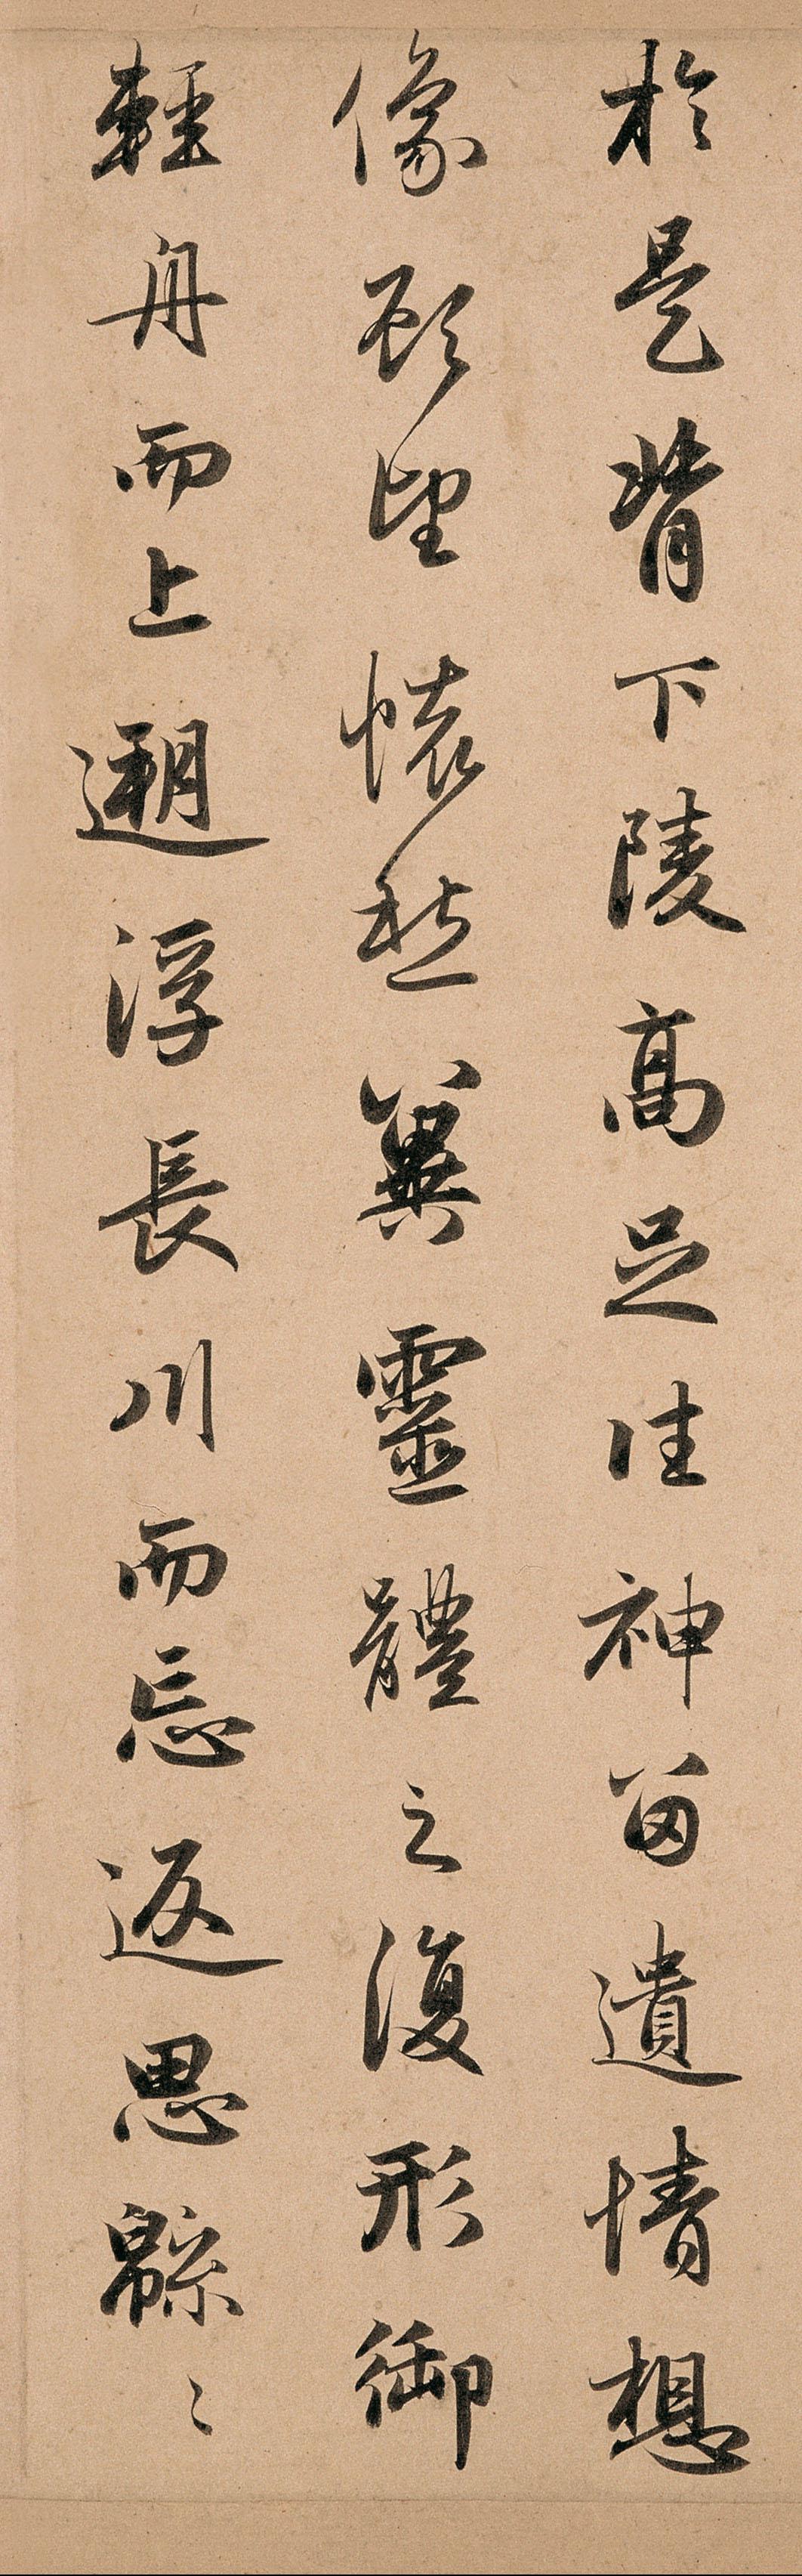 於是背下陵高足往神留遺情想
像顧望懷愁冀靈體之復形御
輕舟而上遡浮長川而忘返思緜〻